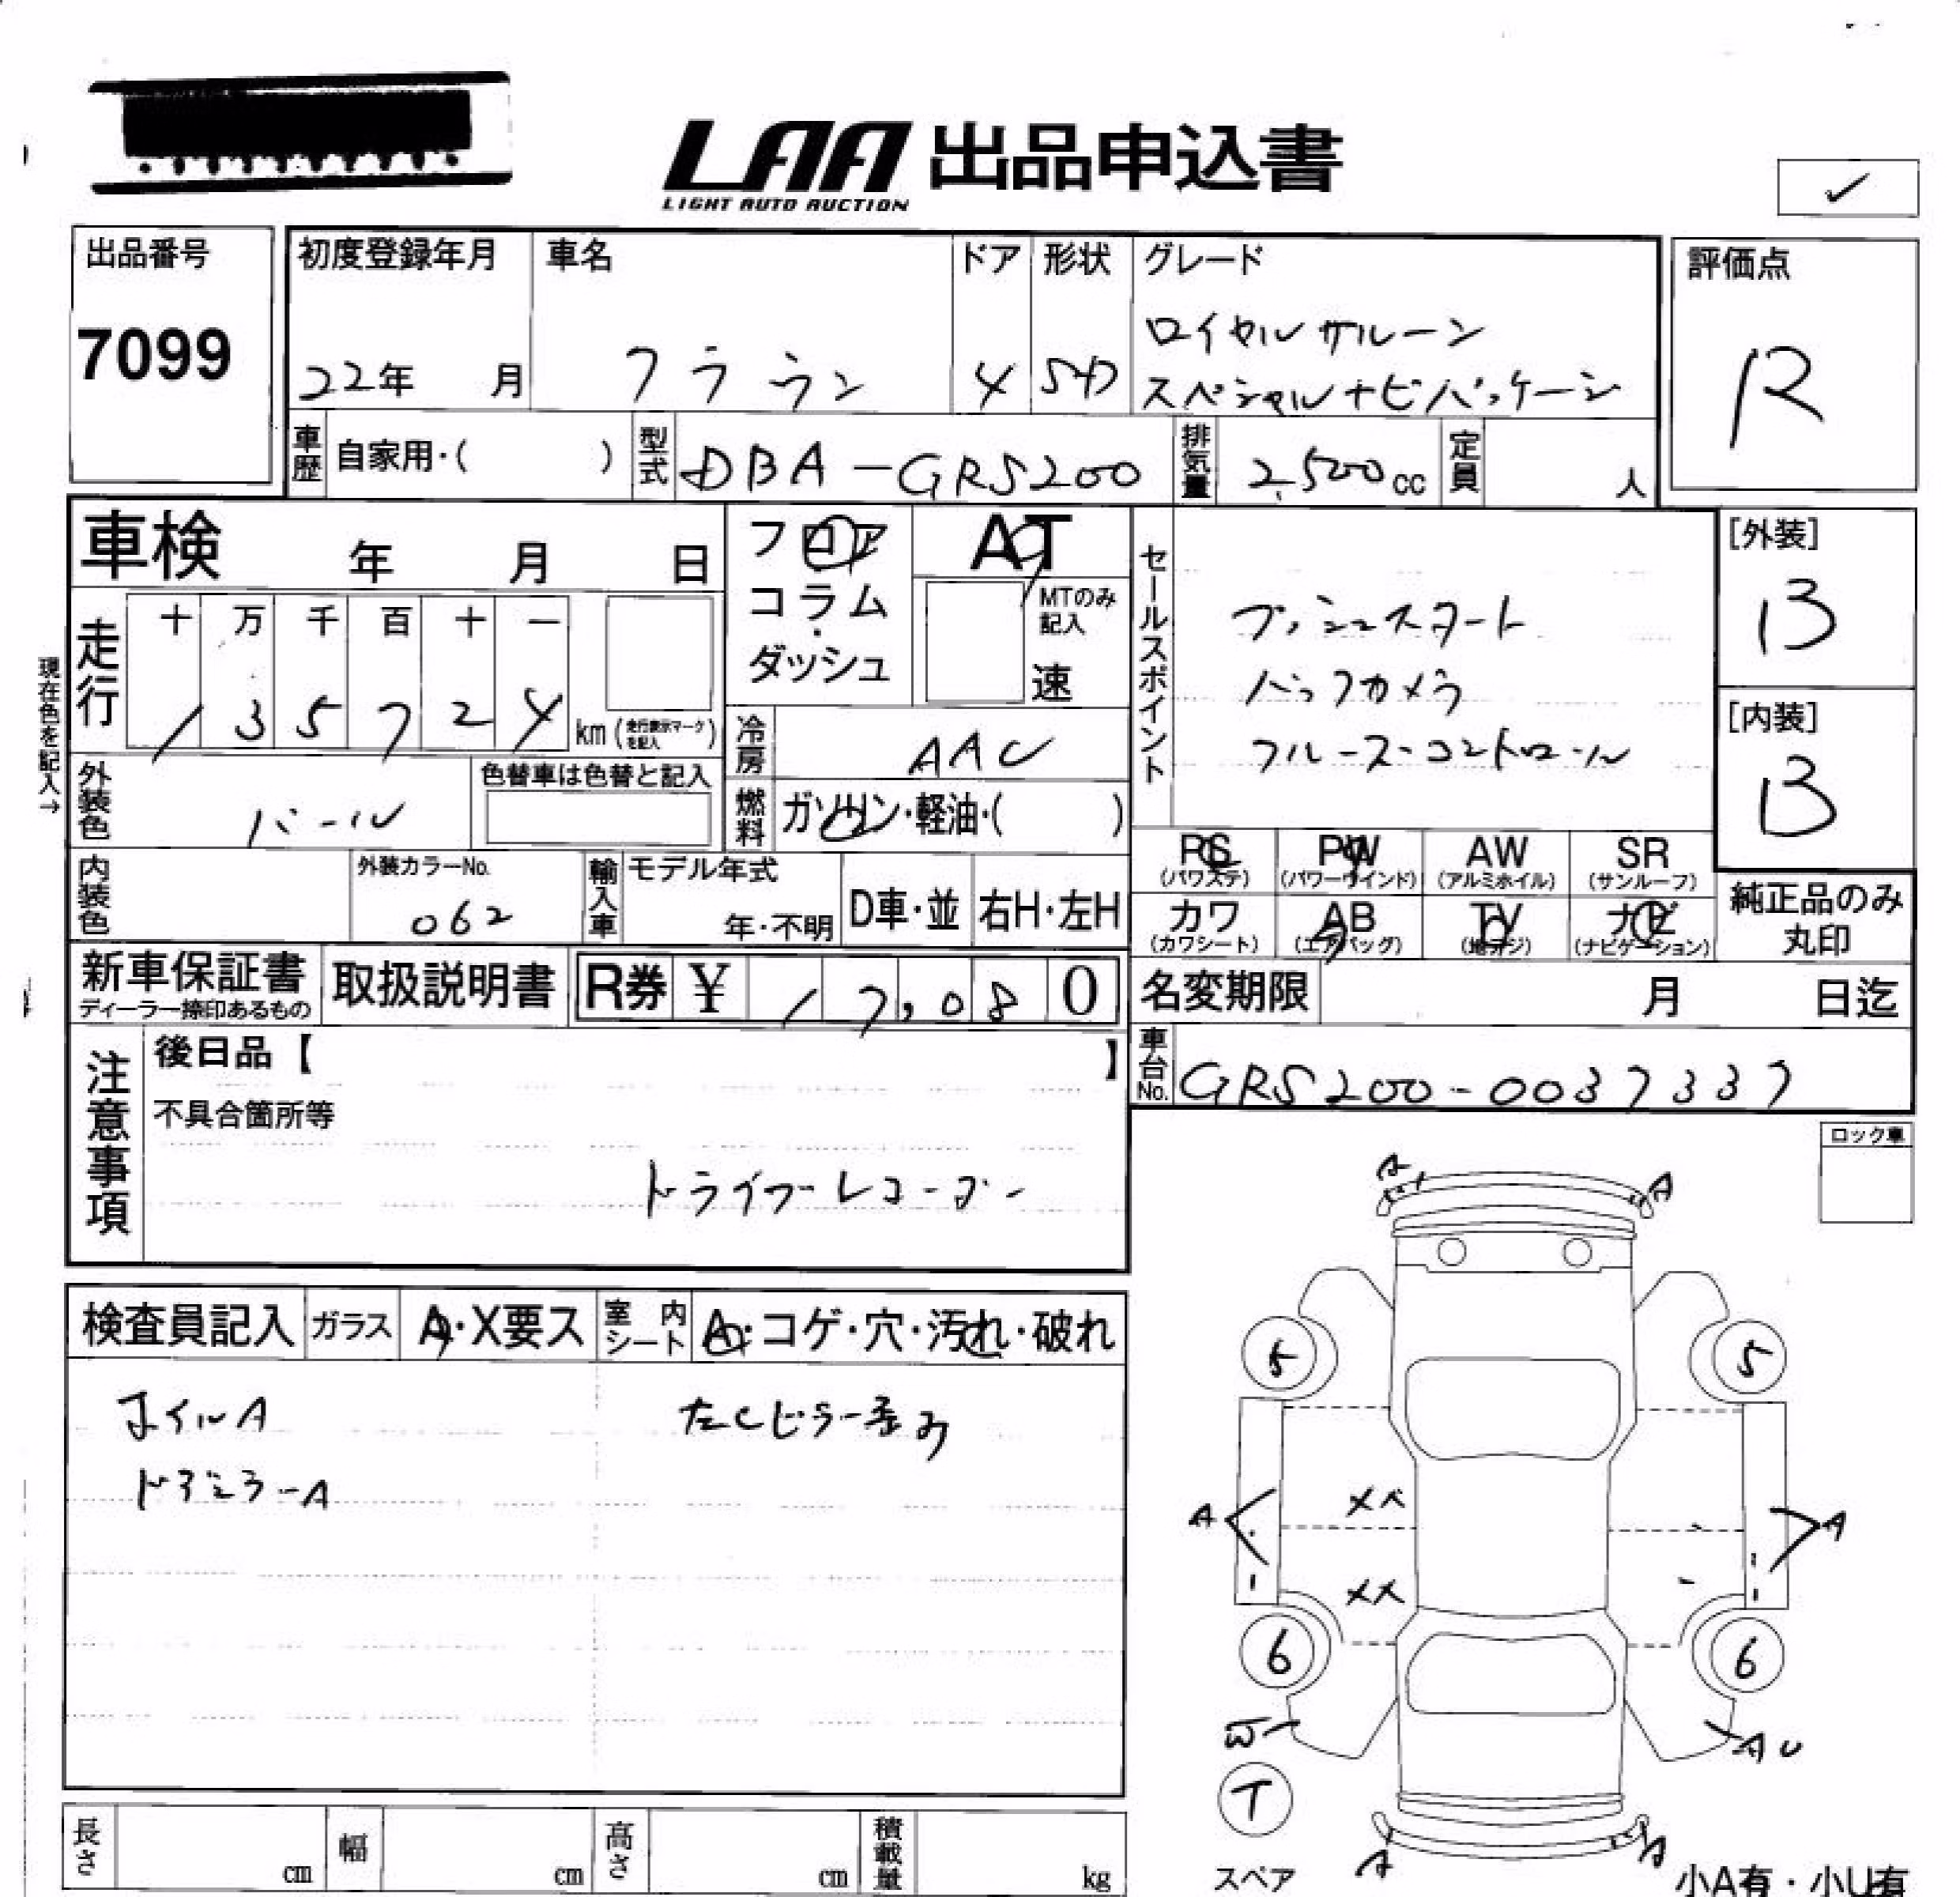 LAA 出品申込書
LIGHT AUTO AUCTION
✓
出品番号
7099
初度登録年月
22年 月
車名
クラウン
ドア
4
形状
SD
グレード
ロイヤルサルーン
スペシャルナビパッケージ
評価点
R
車歴 自家用・( )
型式 DBA-GRS200
排気量 2,500cc
定員 人
車検 年 月 日
フロア
コラム
・
ダッシュ
AT
MTのみ
記入
速
現在色を記入→
走行
十 万 千 百 十 一
1 3 5 7 2 4 km (走行表示マークを記入)
冷房 AAC
外装色 パール
色替車は色替と記入
燃料 ガソリン・軽油・( )
セールスポイント
プッシュスタート
バックカメラ
クルーズコントロール
[外装]
B
[内装]
B
内装色
外装カラーNo.
062
輸入車
モデル年式
年・不明
D車・並
右H・左H
PS
(パワステ)
PW
(パワーウインド)
AW
(アルミホイル)
SR
(サンルーフ)
カワ
(カワシート)
AB
(エアバッグ)
TV
(地デジ)
ナビ
(ナビゲーション)
純正品のみ
丸印
新車保証書
ディーラー捺印あるもの
取扱説明書
R券 ¥ 17,080
名変期限 月 日迄
車台No. GRS200-0037337
注意事項
後日品【 】
不具合箇所等
ドライブレコーダー
ロック車
検査員記入
ガラス A・X要ス
室内シート A・コゲ・穴・汚れ・破れ
ホイルA
ドアミラーA
A
A
5
5
A
XX
A
XX
6
6
W
AU
T
スペア
A
A
小A有・小U有
長さ cm
幅 cm
高さ cm
積載量 kg